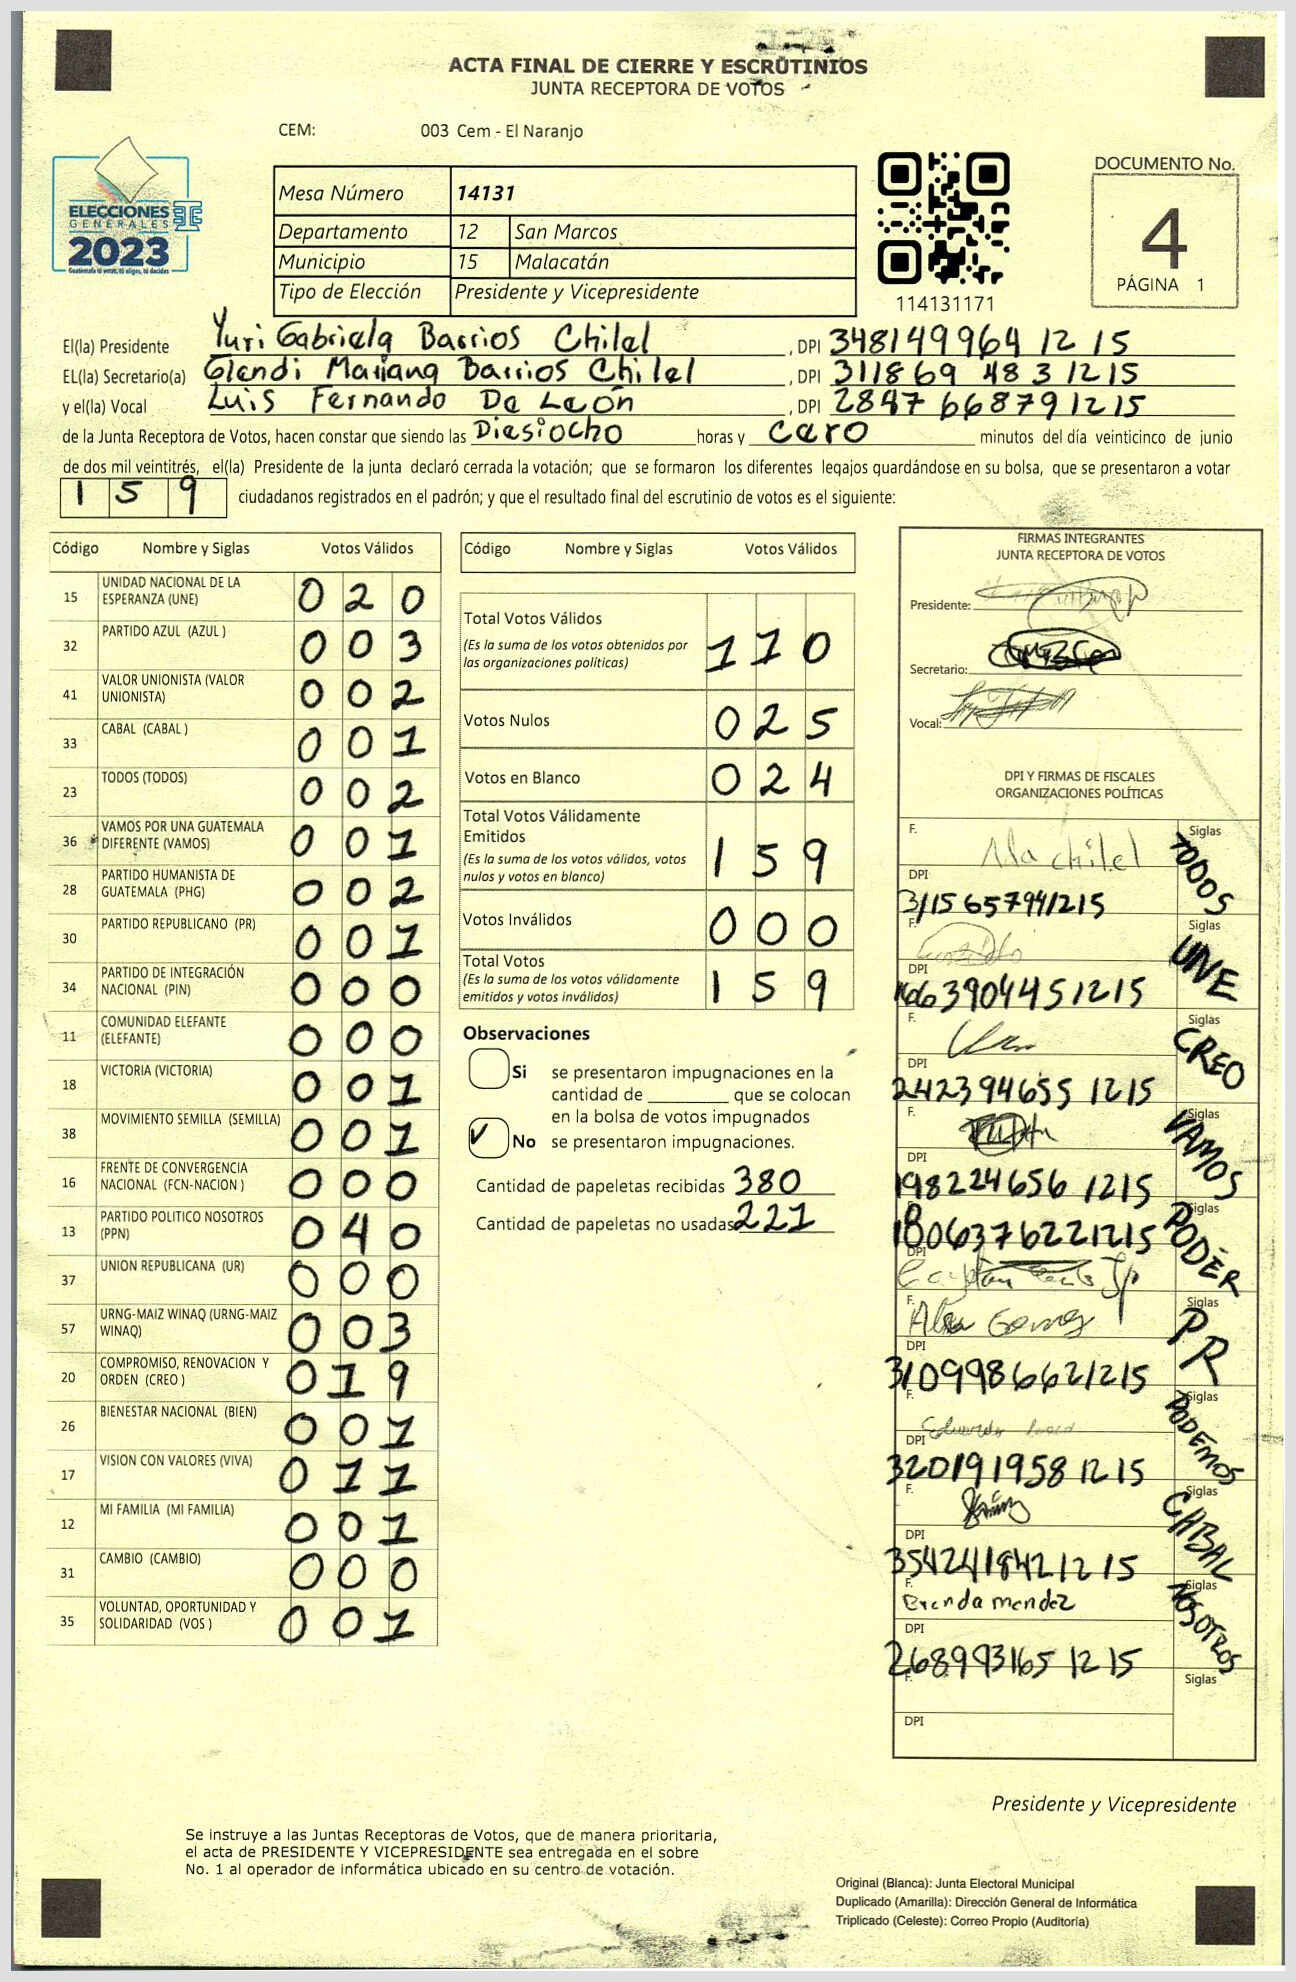 ACTA FINAL DE CIERRE Y ESCRUTINIOS
JUNTA RECEPTORA DE VOTOS
CEM: 003 Cem - El Naranjo
ELECCIONES
GENERALES
2023
Guatemala tú votas, tú eliges, tú decides
Mesa Número 14131
Departamento 12 San Marcos
Municipio 15 Malacatán
Tipo de Elección Presidente y Vicepresidente
114131171
DOCUMENTO No.
4
PÁGINA 1
El(la) Presidente Yuri Gabriela Barrios Chilel, DPI 348149964 12 15
EL(la) Secretario(a) Glendi Mariana Barrios Chilel, DPI 311869 483 1215
y el(la) Vocal Luis Fernando De León, DPI 2847 66879 1215
de la Junta Receptora de Votos, hacen constar que siendo las Diesiocho horas y cero minutos del día veinticinco de junio
de dos mil veintitrés, el(la) Presidente de la junta declaró cerrada la votación; que se formaron los diferentes legajos guardándose en su bolsa, que se presentaron a votar
159 ciudadanos registrados en el padrón; y que el resultado final del escrutinio de votos es el siguiente:
Código Nombre y Siglas Votos Válidos
15 UNIDAD NACIONAL DE LA ESPERANZA (UNE) 020
32 PARTIDO AZUL (AZUL ) 003
41 VALOR UNIONISTA (VALOR UNIONISTA) 002
33 CABAL (CABAL ) 001
23 TODOS (TODOS) 002
36 VAMOS POR UNA GUATEMALA DIFERENTE (VAMOS) 001
28 PARTIDO HUMANISTA DE GUATEMALA (PHG) 002
30 PARTIDO REPUBLICANO (PR) 001
34 PARTIDO DE INTEGRACIÓN NACIONAL (PIN) 000
11 COMUNIDAD ELEFANTE (ELEFANTE) 000
18 VICTORIA (VICTORIA) 001
38 MOVIMIENTO SEMILLA (SEMILLA) 001
16 FRENTE DE CONVERGENCIA NACIONAL (FCN-NACION ) 000
13 PARTIDO POLITICO NOSOTROS (PPN) 040
37 UNION REPUBLICANA (UR) 000
57 URNG-MAIZ WINAQ (URNG-MAIZ WINAQ) 003
20 COMPROMISO, RENOVACION Y ORDEN (CREO ) 019
26 BIENESTAR NACIONAL (BIEN) 001
17 VISION CON VALORES (VIVA) 011
12 MI FAMILIA (MI FAMILIA) 001
31 CAMBIO (CAMBIO) 000
35 VOLUNTAD, OPORTUNIDAD Y SOLIDARIDAD (VOS ) 001
Código Nombre y Siglas Votos Válidos
Total Votos Válidos 110
(Es la suma de los votos obtenidos por
las organizaciones politicas)
Votos Nulos 025
Votos en Blanco 024
Total Votos Válidamente
Emitidos 159
(Es la suma de los votos válidos, votos
nulos y votos en blanco)
Votos Inválidos 000
Total Votos 159
(Es la suma de los votos válidamente
emitidos y votos inválidos)
Observaciones
Si se presentaron impugnaciones en la
cantidad de ________ que se colocan
en la bolsa de votos impugnados
✓ No se presentaron impugnaciones.
Cantidad de papeletas recibidas 380
Cantidad de papeletas no usadas 221
FIRMAS INTEGRANTES
JUNTA RECEPTORA DE VOTOS
Presidente:
Secretario:
Vocal:
DPI Y FIRMAS DE FISCALES
ORGANIZACIONES POLÍTICAS
F. Siglas TODOS
DPI 3115657941215
F. Siglas UNE
DPI 1663904451215
F. Siglas CREO
DPI 242394655 1215
F. Siglas VAMOS
DPI 198224656 1215
Siglas PODER
DPI 1806376221215
F. Siglas PR
DPI 3109986621215
F. Siglas PODEMOS
DPI 320191958 12 15
F. Siglas CABAL
DPI 3542418421215
F. Brenda mendez Siglas NOSOTROS
DPI 268993165 1215
F. Siglas
DPI
Presidente y Vicepresidente
Se instruye a las Juntas Receptoras de Votos, que de manera prioritaria,
el acta de PRESIDENTE Y VICEPRESIDENTE sea entregada en el sobre
No. 1 al operador de informática ubicado en su centro de votación.
Original (Blanca): Junta Electoral Municipal
Duplicado (Amarilla): Dirección General de Informática
Triplicado (Celeste): Correo Propio (Auditoría)